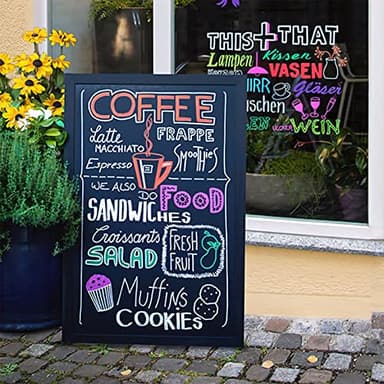 COFFEE
Latte
MACCHIATO
FRAPPE
Espresso
Smoothies
WE ALSO DO FOOD
SANDWICHES
Croissants
SALAD
FRESH
FRUIT
Muffins
COOKIES
THIS + THAT
Lampen
Kissen
VASEN
Gläser
WEIN